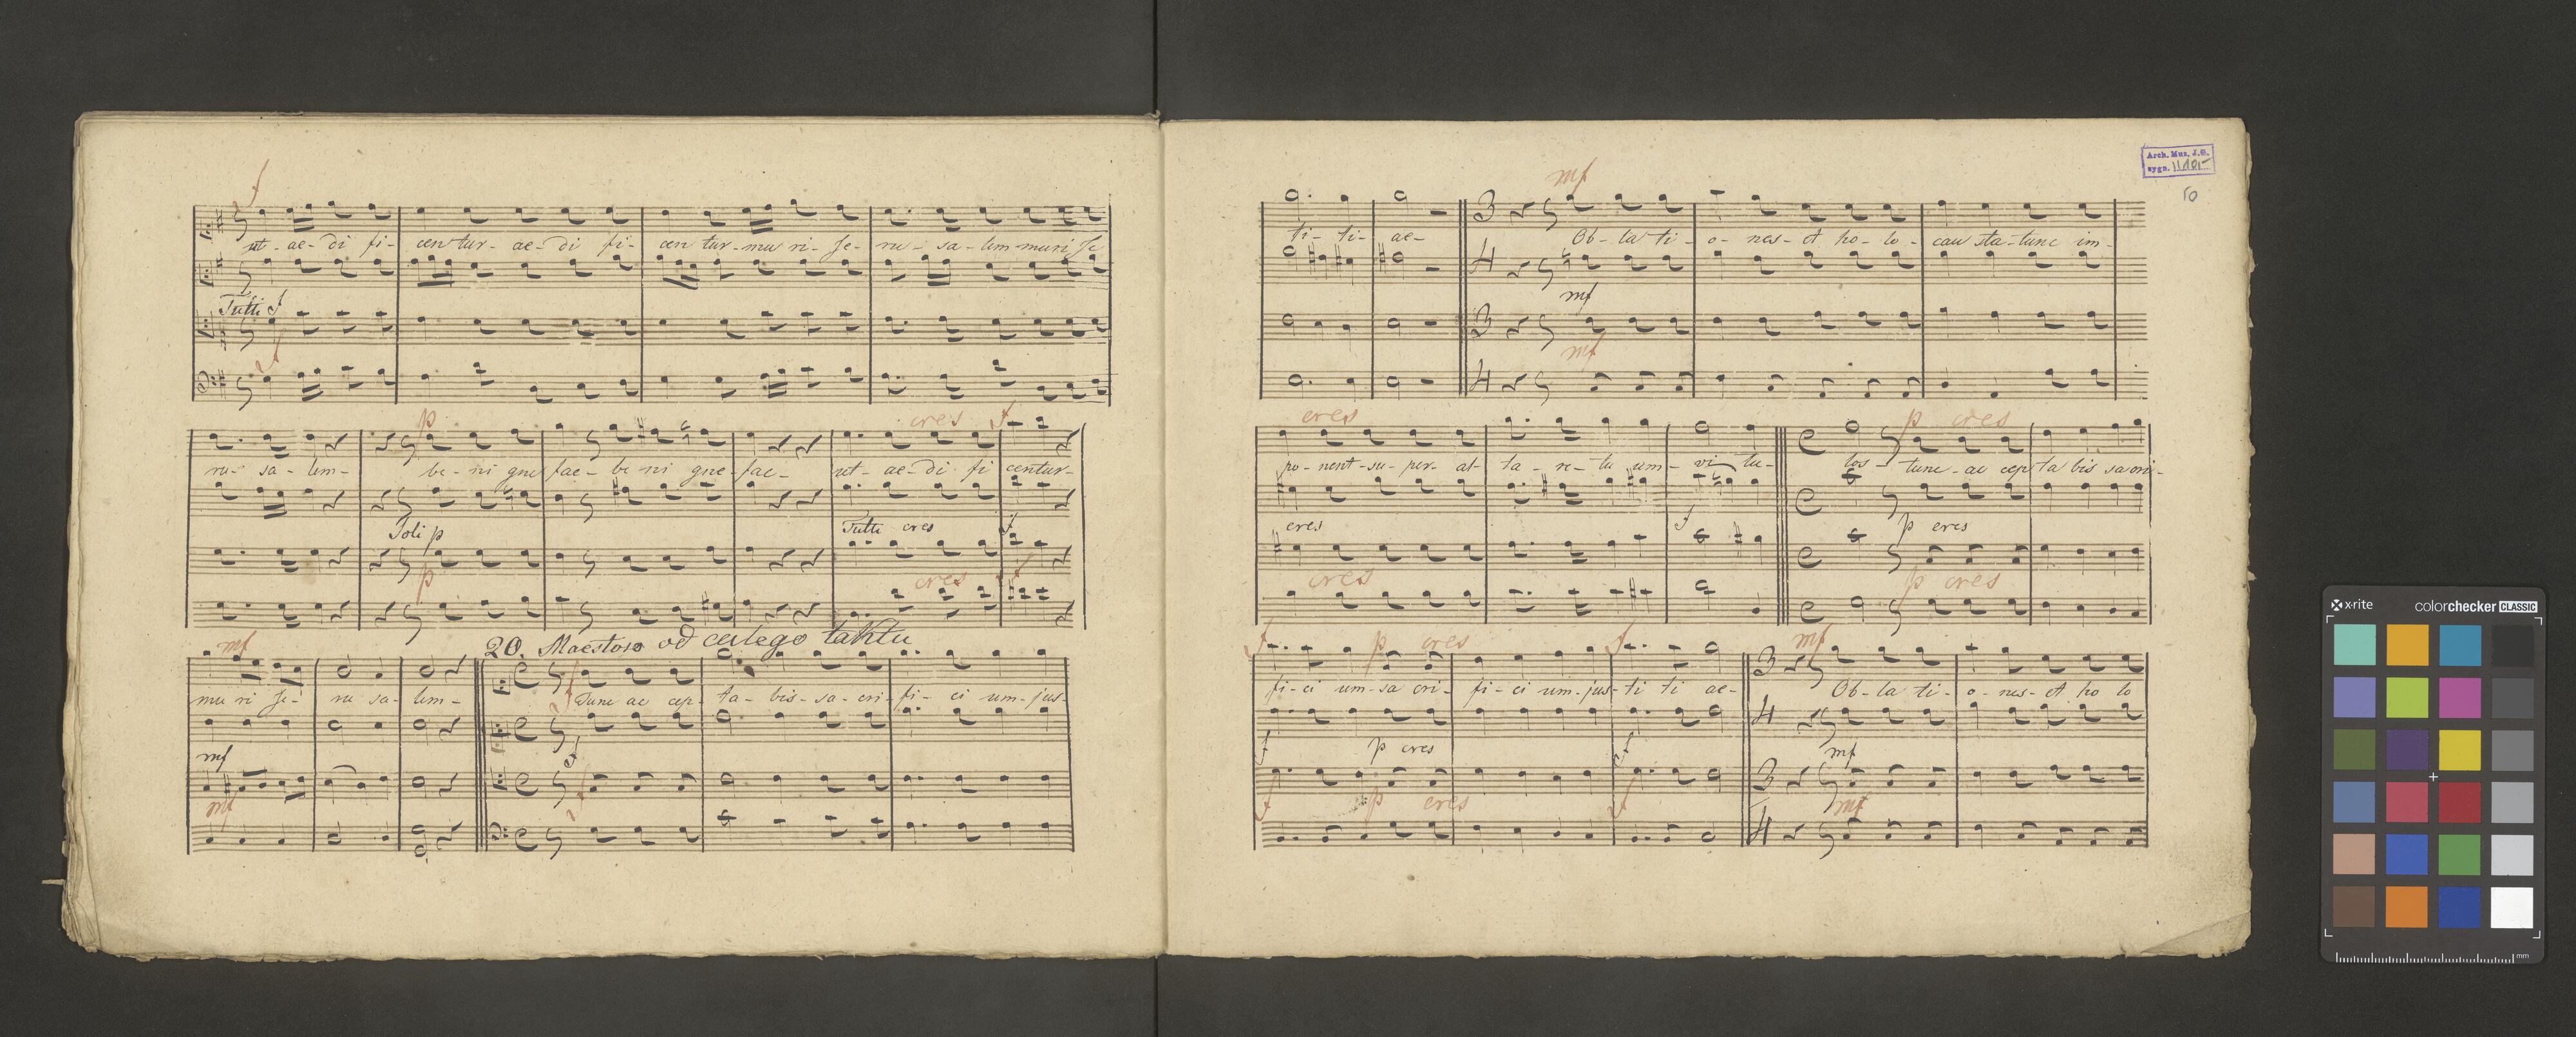 f
ut - ae - di fi - cen tur - ae - di fi - cen tur - mu ri - Je - ru - sa - lem muri Je
Tutti f
f
p cres f
ru - sa - lem - be - ni gne fac - be ni gne - fac - ut - ae - di fi centur -
Soli p Tutti cres f
p cres f
mf 20. Maestoso od całego taktu
mu ri Je - ru sa - lem - Tunc ac cep - ta - bis - sa - cri - fi - ci um - jus -
mf f
mf f
Arch. Muz. J.G.
sygn.
50
mf
ti - ti - ae - 3 4 Ob - la ti - o - nes - et ho - lo - cau sta - tunc im -
mf
3 4 mf
cres p cres
po - nent - su - per - al - ta - re - tu um - vi tu - los - tunc - ac cep ta bis sacri -
cres f p cres
cres p cres
f p cres f mf
fi - ci um - sa cri - fi - ci um - jus - ti ti ae - 3 4 Ob - la ti - o - nes - et ho lo
f p cres f mf
f p cres f 3 4 mf
x-rite colorchecker CLASSIC
mm